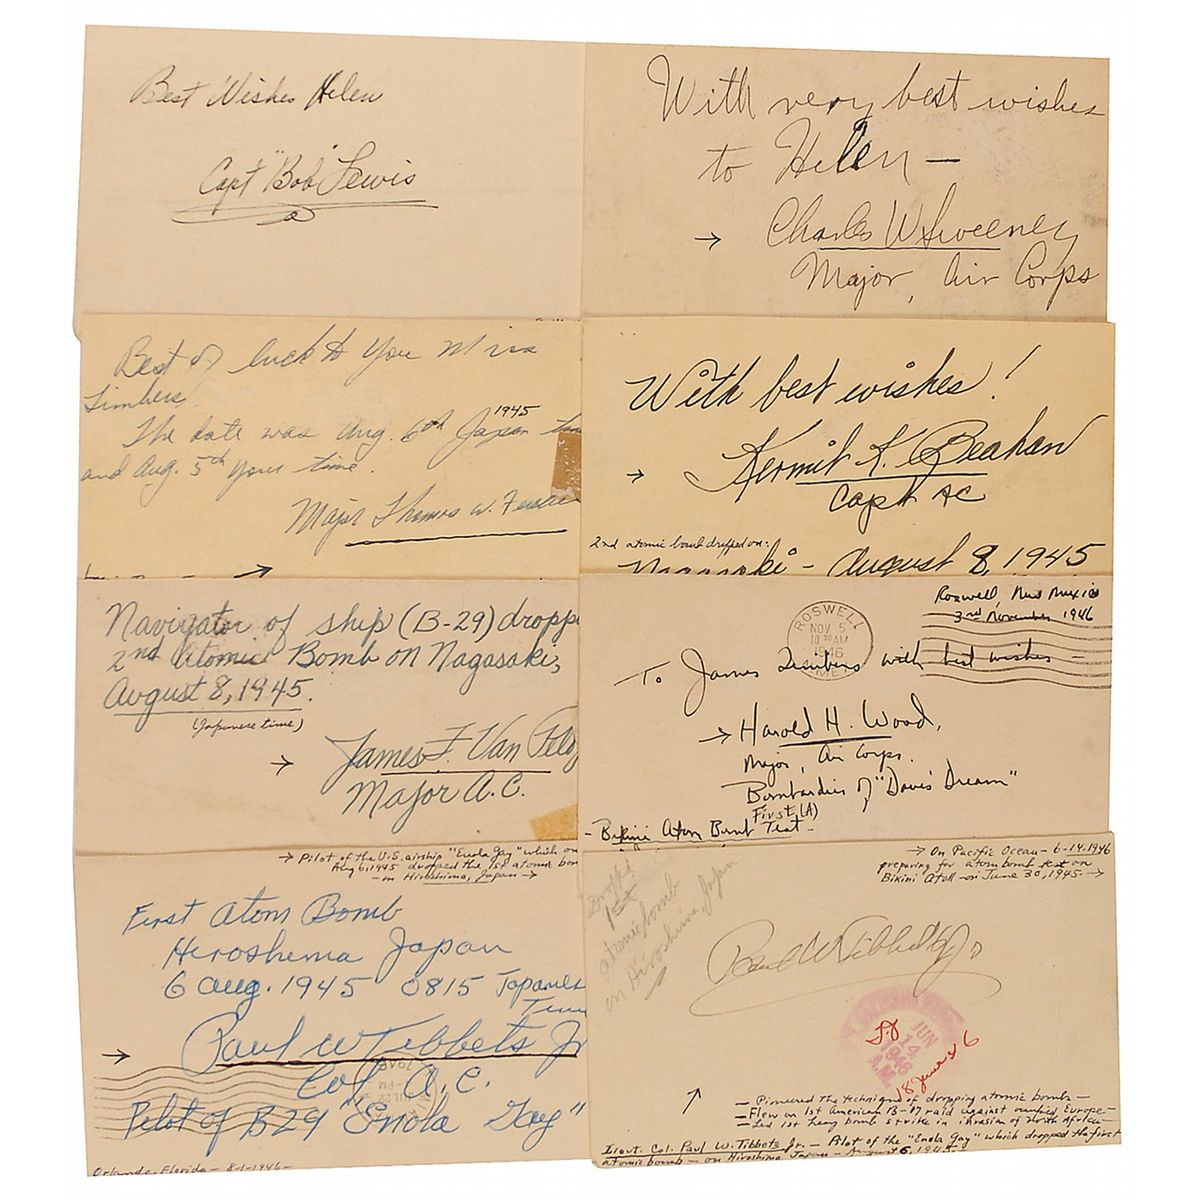 Best Wishes Helen
Capt "Bob" Lewis
With very best wishes
to Helen —
→ Charles W Sweeney
Major, Air Corps
Best of luck to you Miss
Timbers.
The date was Aug. 6th 1945 Japan
and Aug. 5th your time.
Major Thomas W. Ferebee
→
With best wishes!
→ Kermit K. Beahan
Capt AC
2nd atomic bomb dropped on:
Nagasaki - August 8, 1945
Navigator of ship (B-29) dropp
2nd Atomic Bomb on Nagasaki,
August 8, 1945.
(Japanese time)
→ James F. Van Pelt,
Major A.C.
Roswell, New Mexico
3rd November 1946
ROSWELL
NOV 5
10 30 AM
1946
N. MEX.
To James Timbers with best wishes —
→ Harold H. Wood,
Major, Air Corps.
Bombardier of "Dave's Dream"
First (A)
- Bikini Atom Bomb Test -
→ Pilot of the U.S. airship "Enola Gay" which on
Aug 6, 1945 dropped the 1st atomic bom
- on Hiroshima, Japan →
First Atom Bomb
Hiroshema Japan
6 Aug. 1945 0815 Japanes
Time
→ Paul W Tibbets Jr
Col A.C.
Pilot of B29 "Enola Gay"
JUL 22
PM
Orlando, Florida - 8-1-1946 -
→ On Pacific Ocean - 6-14-1946
preparing for atom bomb test on
Bikini Atoll - on June 30, 1945 →
Dropped
1st
atomic bomb
on Hiroshima, Japan
Paul W Tibbets Jr
JUN
14
1946
A.M.
18 June 46
↑
— Pioneered the technique of dropping atomic bombs —
— Flew on 1st American B-17 raid against occupied Europe —
— Led 1st heavy bomb strike in invasion of North Africa —
Lieut. Col. Paul W. Tibbets Jr. - Pilot of the "Enola Gay" which dropped the first
atomic bomb - on Hiroshima, Japan - August 5, 1945.